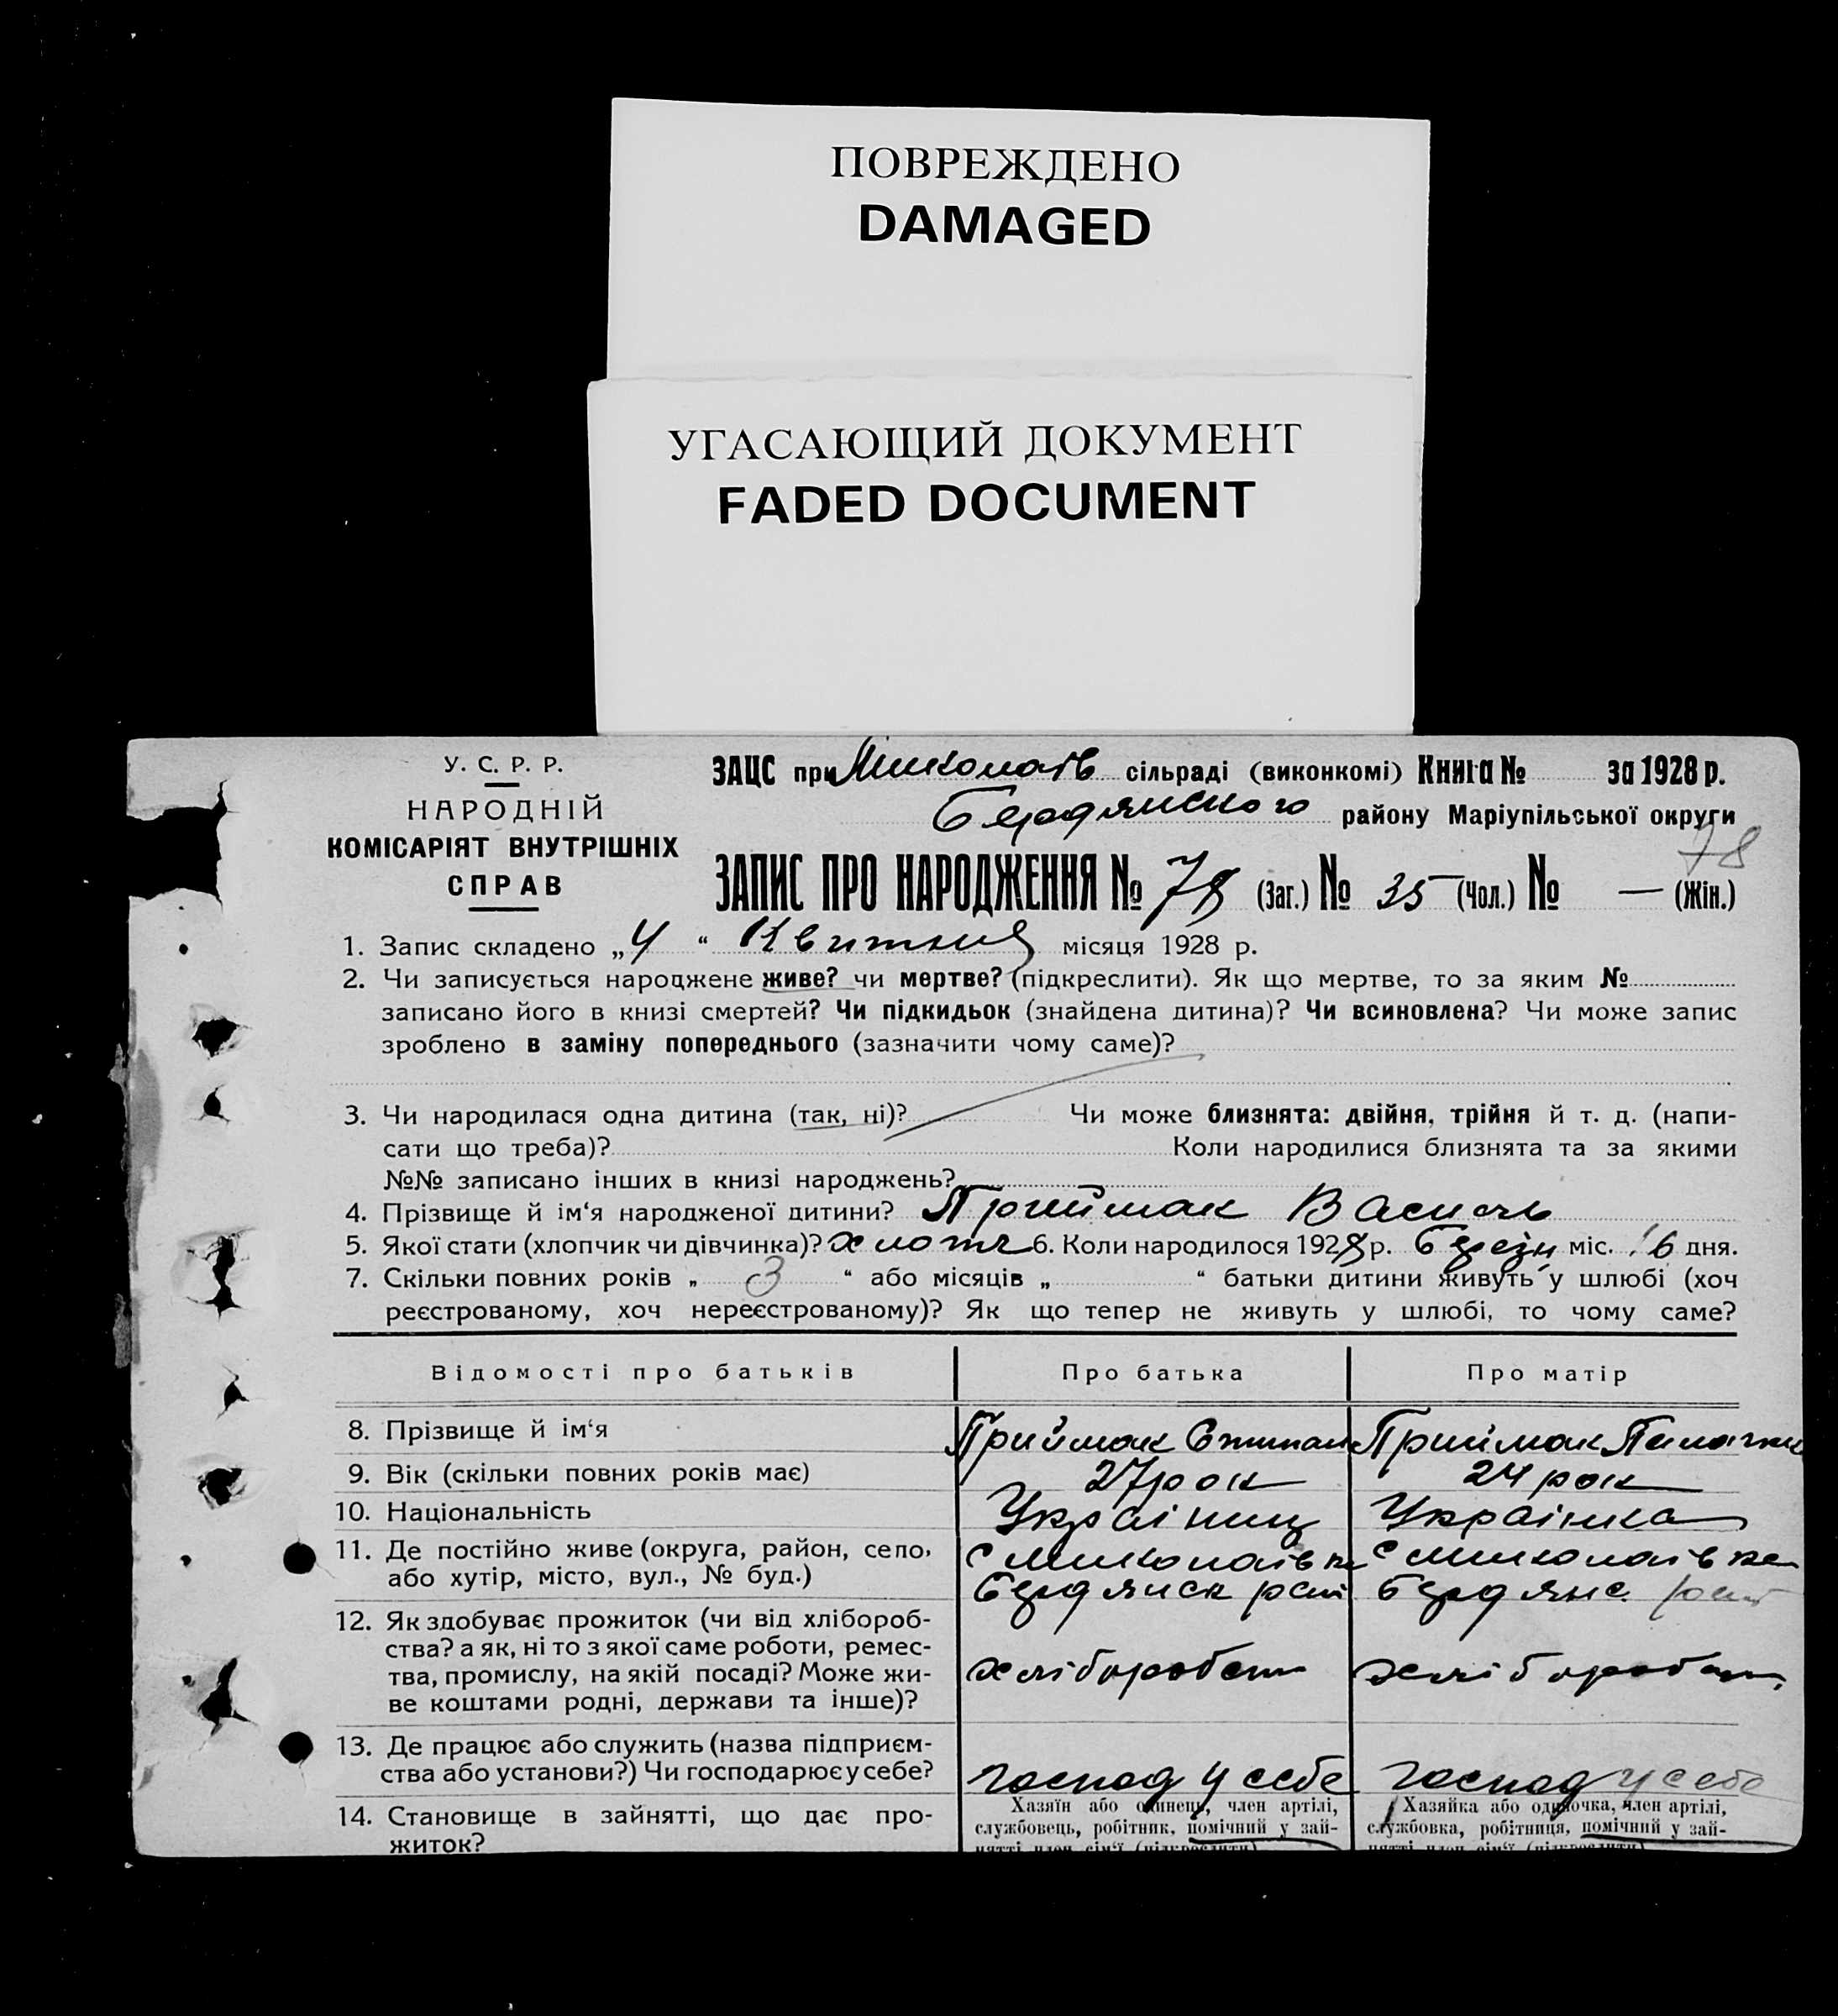 ПОВРЕЖДЕНО
DAMAGED
УГАСАЮЩИЙ ДОКУМЕНТ
FADED DOCUMENT
У. С. Р. Р.
НАРОДНІЙ
КОМІСАРІЯТ ВНУТРІШНІХ
СПРАВ
ЗАЦС при Миколаїв сільраді (виконкомі) Книга № за 1928 р.
Бердянского району Маріупільської округи
78
ЗАПИС ПРО НАРОДЖЕННЯ № 78 (Заг.) № 35 (Чол.) № — (Жін.)
1. Запис складено „4“ Квитня місяця 1928 р.
2. Чи записується народжене живе? чи мертве? (підкреслити). Як що мертве, то за яким №
записано його в книзі смертей? Чи підкидьок (знайдена дитина)? Чи всиновлена? Чи може запис
зроблено в заміну попереднього (зазначити чому саме)?
3. Чи народилася одна дитина (так, ні)? Чи може близнята: двійня, трійня й т. д. (напи-
сати що треба)? Коли народилися близнята та за якими
№№ записано інших в книзі народжень?
4. Прізвище й ім‘я народженої дитини? Приймак Василь
5. Якої стати (хлопчик чи дівчинка)? 6. Коли народилося 1928 р. Березн міс. 16 дня.
7. Скільки повних років „ 3 “ або місяців „ “ батьки дитини живуть у шлюбі (хоч
реєстрованому, хоч нереєстрованому)? Як що тепер не живуть у шлюбі, то чому саме?
Відомості про батьків Про батька Про матір
8. Прізвище й ім‘я Приймак Степан Приймак
9. Вік (скільки повних років має) 27 рок 24 рок
10. Національність Українец Українка
11. Де постійно живе (округа, район, село,
або хутір, місто, вул., № буд.)
с Миколаївка
Бердянск рай
с Миколаївка
Бердянс рай
12. Як здобуває прожиток (чи від хлібороб-
ства? а як, ні то з якої саме роботи, ремес-
тва, промислу, на якій посаді? Може жи-
ве коштами родні, держави та інше)?
хлібороб
хлібороб
13. Де працює або служить (назва підприєм-
ства або установи?) Чи господарює у себе?
господ у себе
господ у себе
14. Становище в зайнятті, що дає про-
житок?
Хазяїн або одинець, член артілі,
службовець, робітник, помічний у зай-
нятті член сім‘ї (підкреслити)
Хазяйка або одиночка, член артілі,
службовка, робітниця, помічний у зай-
нятті член сім‘ї (підкреслити)